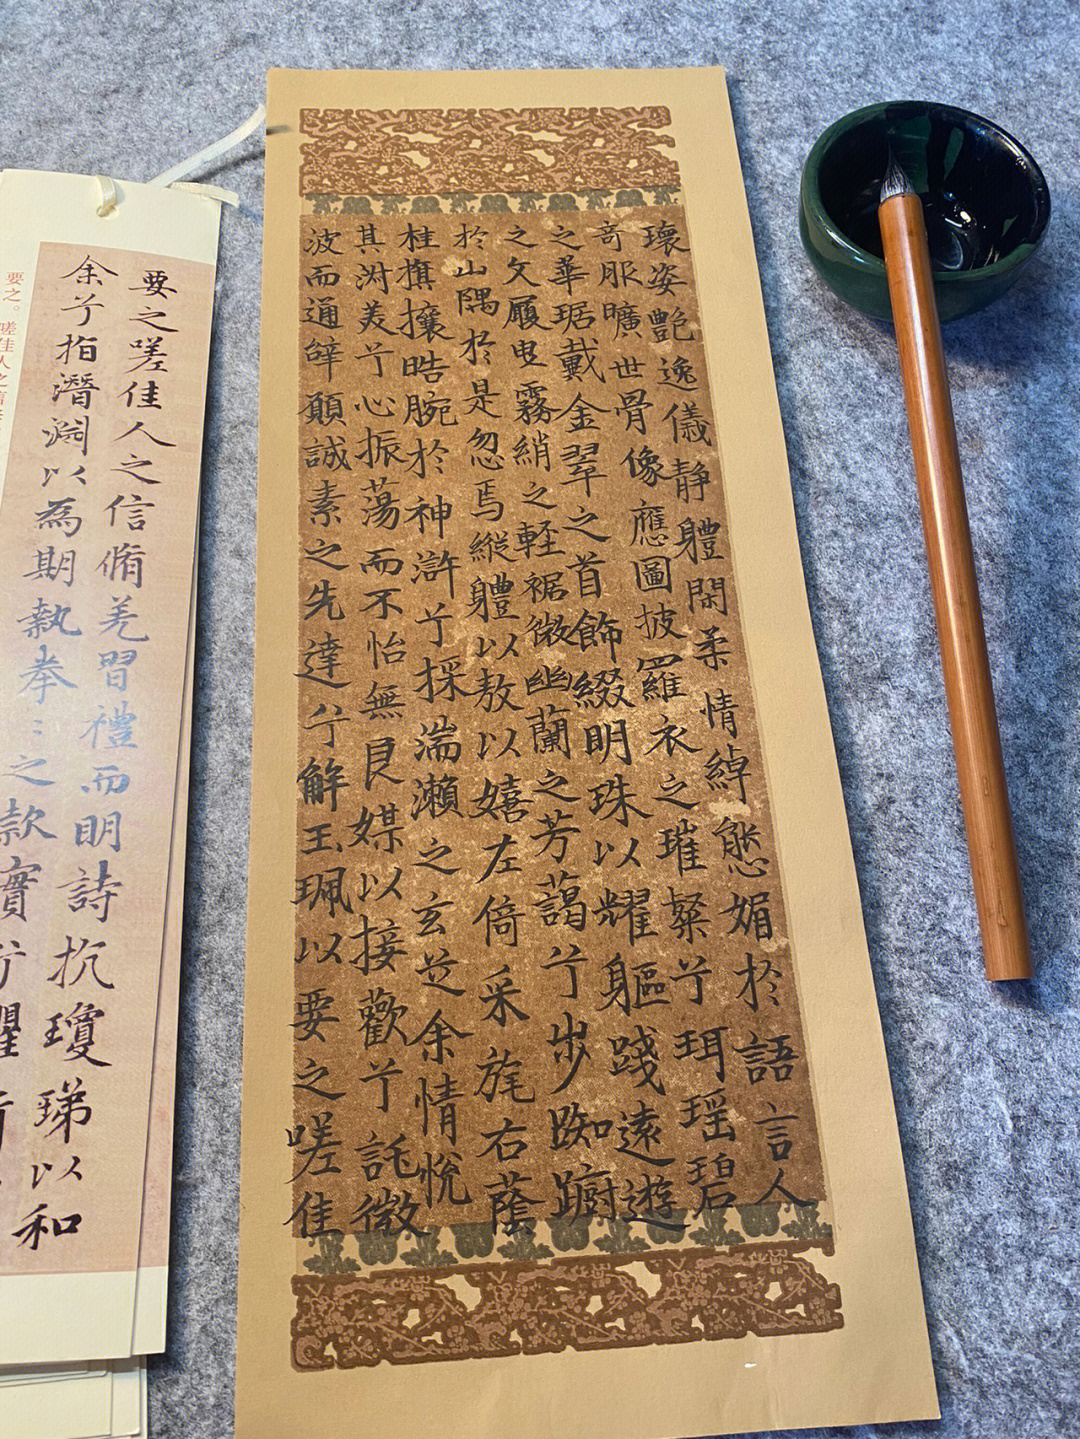 瓌姿艷逸儀静軆閑柔情綽態媚於語言人
奇服曠世骨像應圖披羅衣之璀粲兮珥瑶碧
之華琚戴金翠之首飾綴明珠以耀軀踐遠遊
之文履曳霧綃之輕裾微幽蘭之芳藹兮步踟躕
於山隅於是忽焉縱軆以敖以嬉左倚采旄右蔭
桂旗攘皓腕於神滸兮採湍瀨之玄芝余情悅
其淑美兮心振蕩而不怡無良媒以接歡兮託微
波而通辞願誠素之先達兮解玉珮以要之嗟佳
要之嗟佳人之信脩羌習禮而明詩抗瓊珶以和
余兮指潛淵以為期執拳〻之款實兮懼
要之。嗟佳人之信